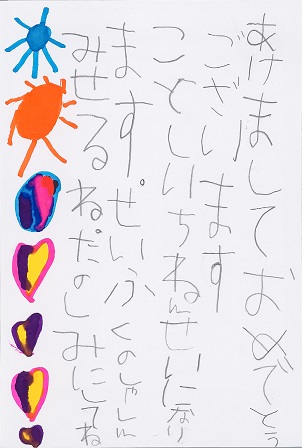 あけましておめでとう
ございます
ことしいちねんせいになり
ます。せいふくのしゃしん
みせるね。たのしみにしてね